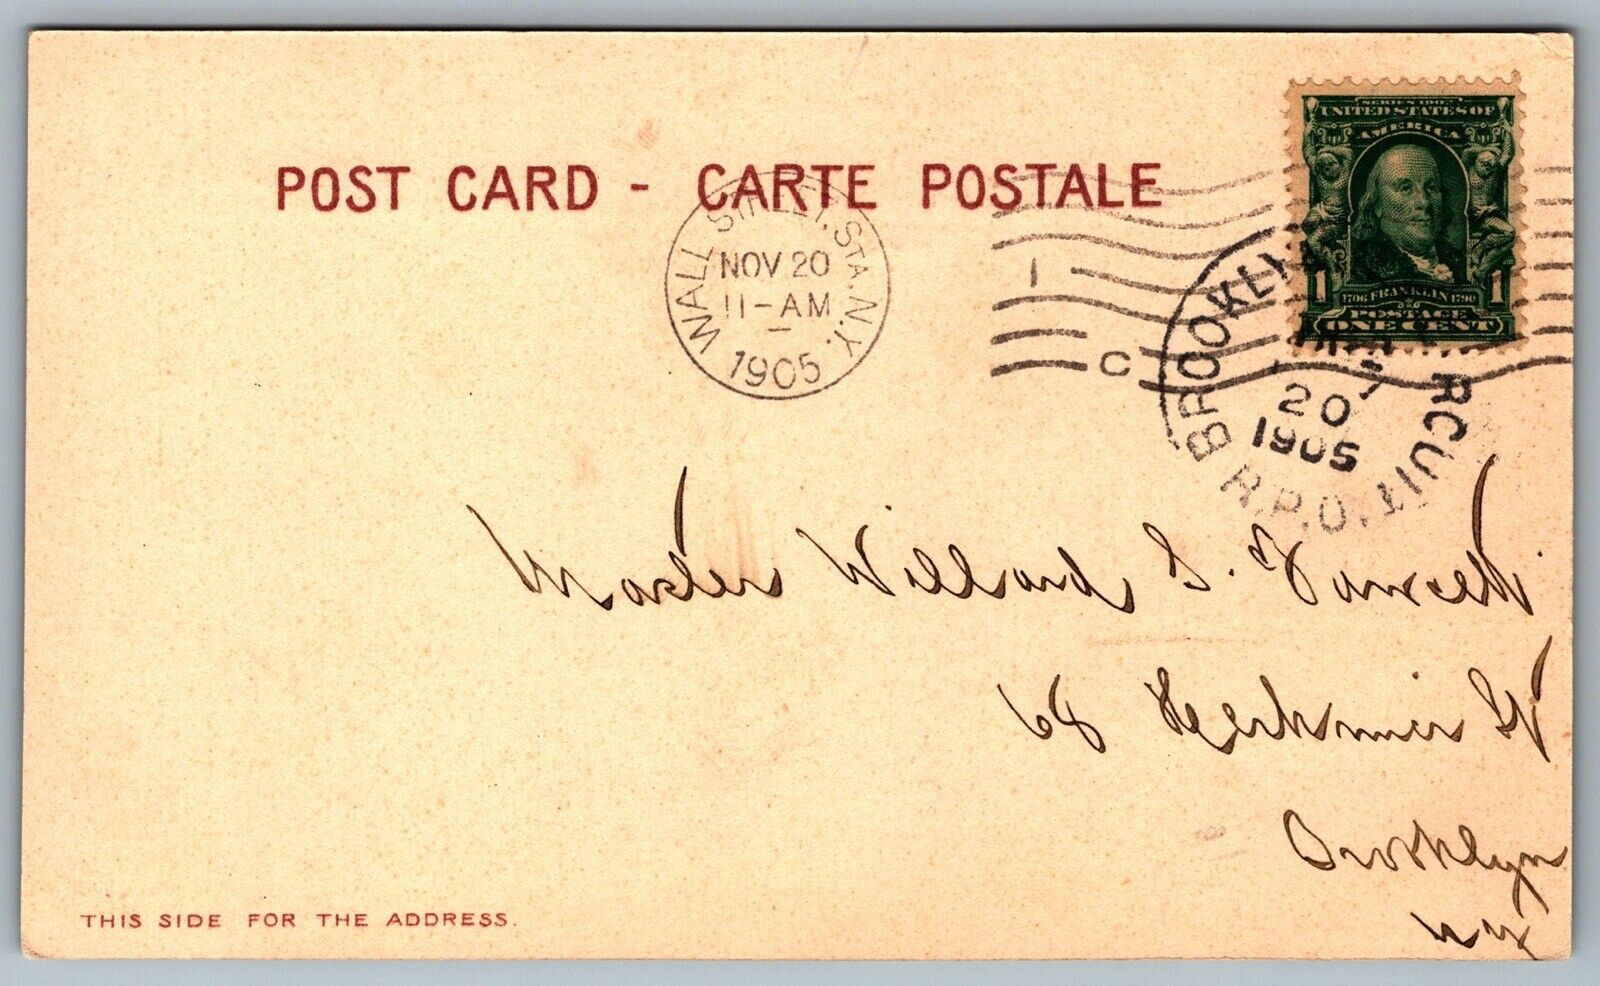 POST CARD - CARTE POSTALE
WALL STREET, STA. N.Y.
NOV 20
11-AM
1905
1
C
SERIES 1902
UNITED STATES OF
AMERICA
1 1
1706 FRANKLIN 1790
POSTAGE
ONE CENT
BROOKLYN RCUIT
R.P.O.
20
1905
Master Willard S. Fawcett
68 Herkimer St
Brooklyn
NY
THIS SIDE FOR THE ADDRESS.